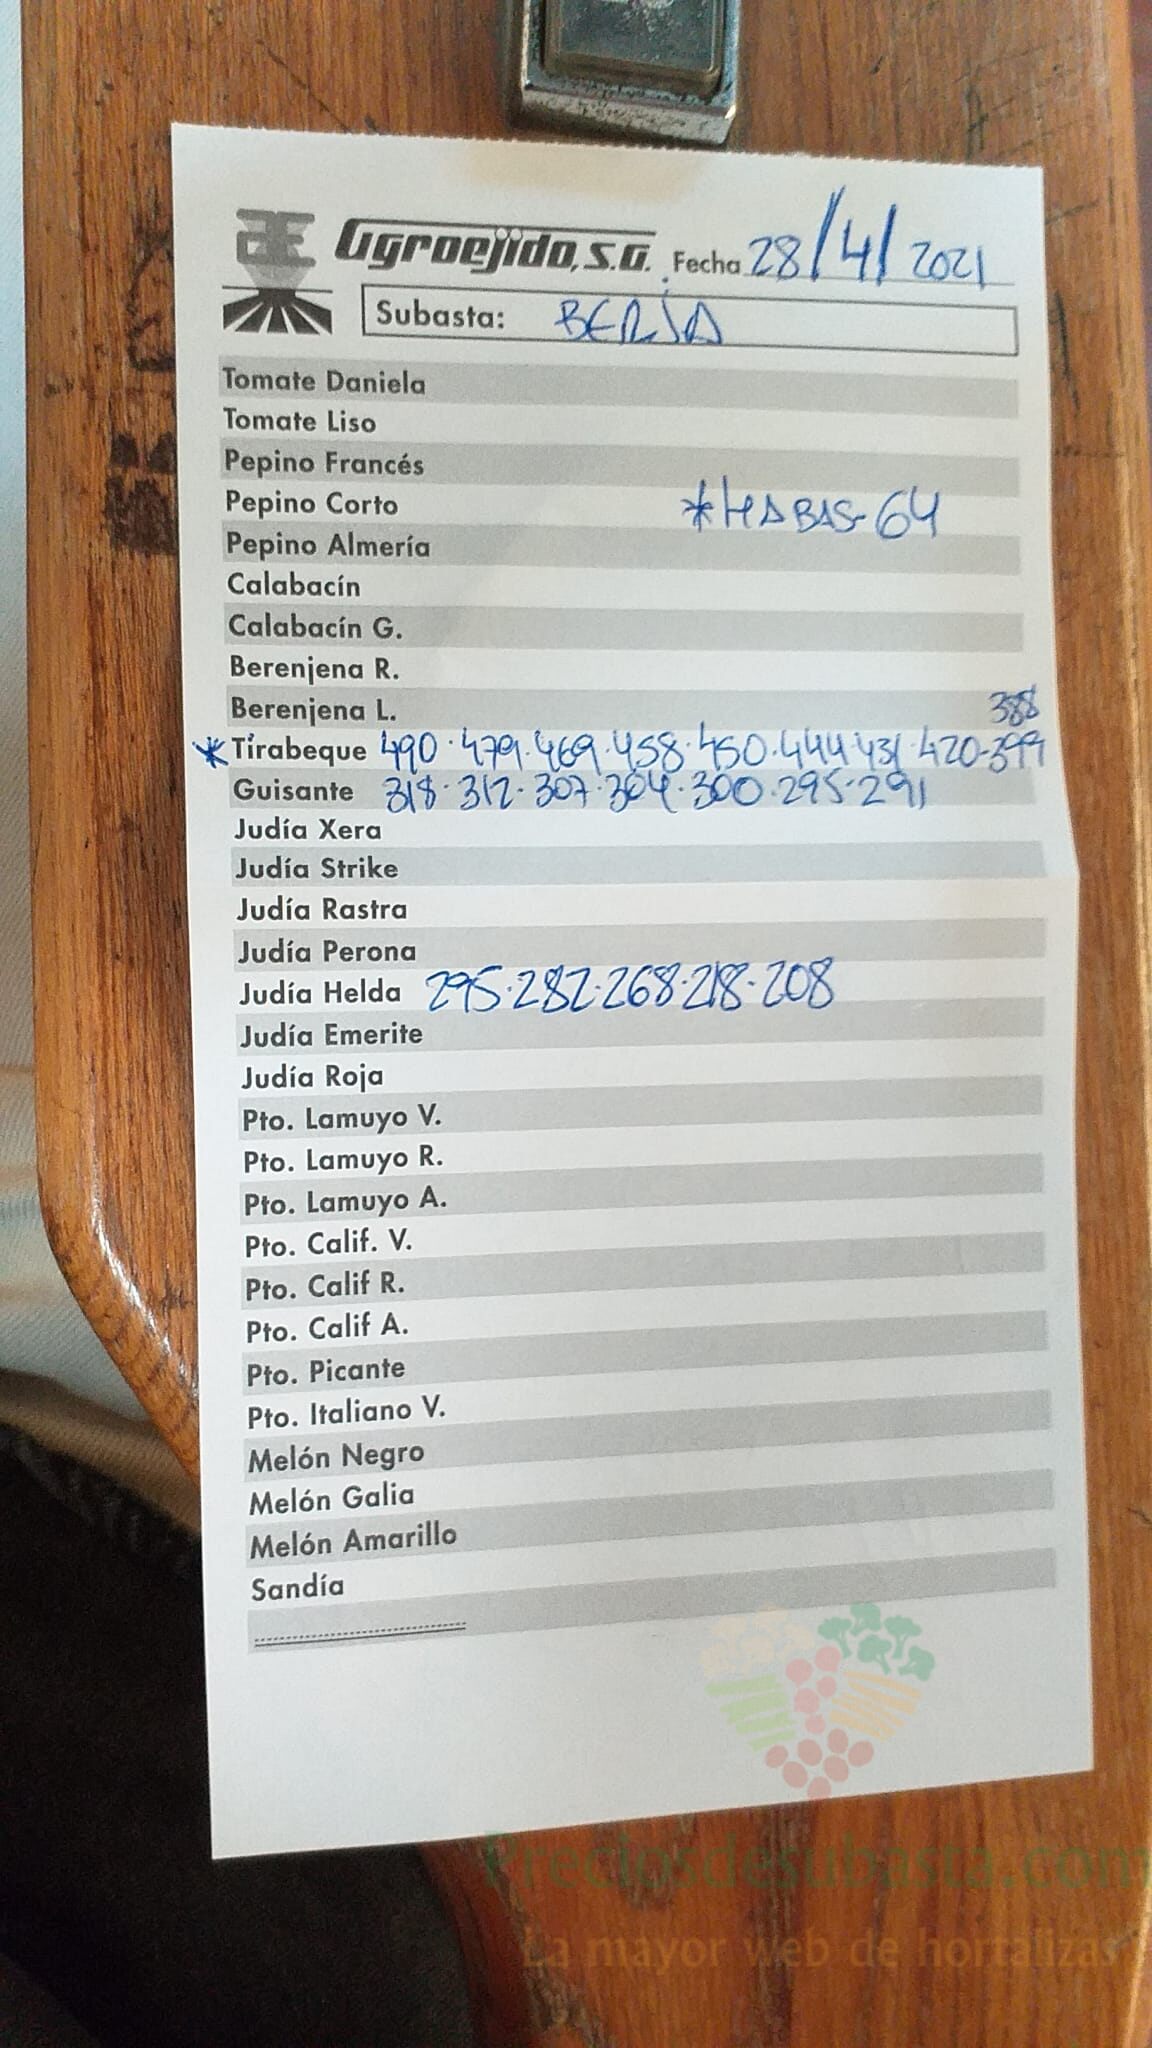 Agroejido, S.A. Fecha 28/4/2021
Subasta: BERJA
Tomate Daniela
Tomate Liso
Pepino Francés
Pepino Corto *HABAS-64
Pepino Almería
Calabacín
Calabacín G.
Berenjena R.
Berenjena L. 388
*Tirabeque 490·479·469·458·450·444·431·420-399
Guisante 318·312·307·304·300·295·291
Judía Xera
Judía Strike
Judía Rastra
Judía Perona
Judía Helda 295·282·268·218·208
Judía Emerite
Judía Roja
Pto. Lamuyo V.
Pto. Lamuyo R.
Pto. Lamuyo A.
Pto. Calif. V.
Pto. Calif R.
Pto. Calif A.
Pto. Picante
Pto. Italiano V.
Melón Negro
Melón Galia
Melón Amarillo
Sandía
Preciosdesubasta.com
La mayor web de hortalizas